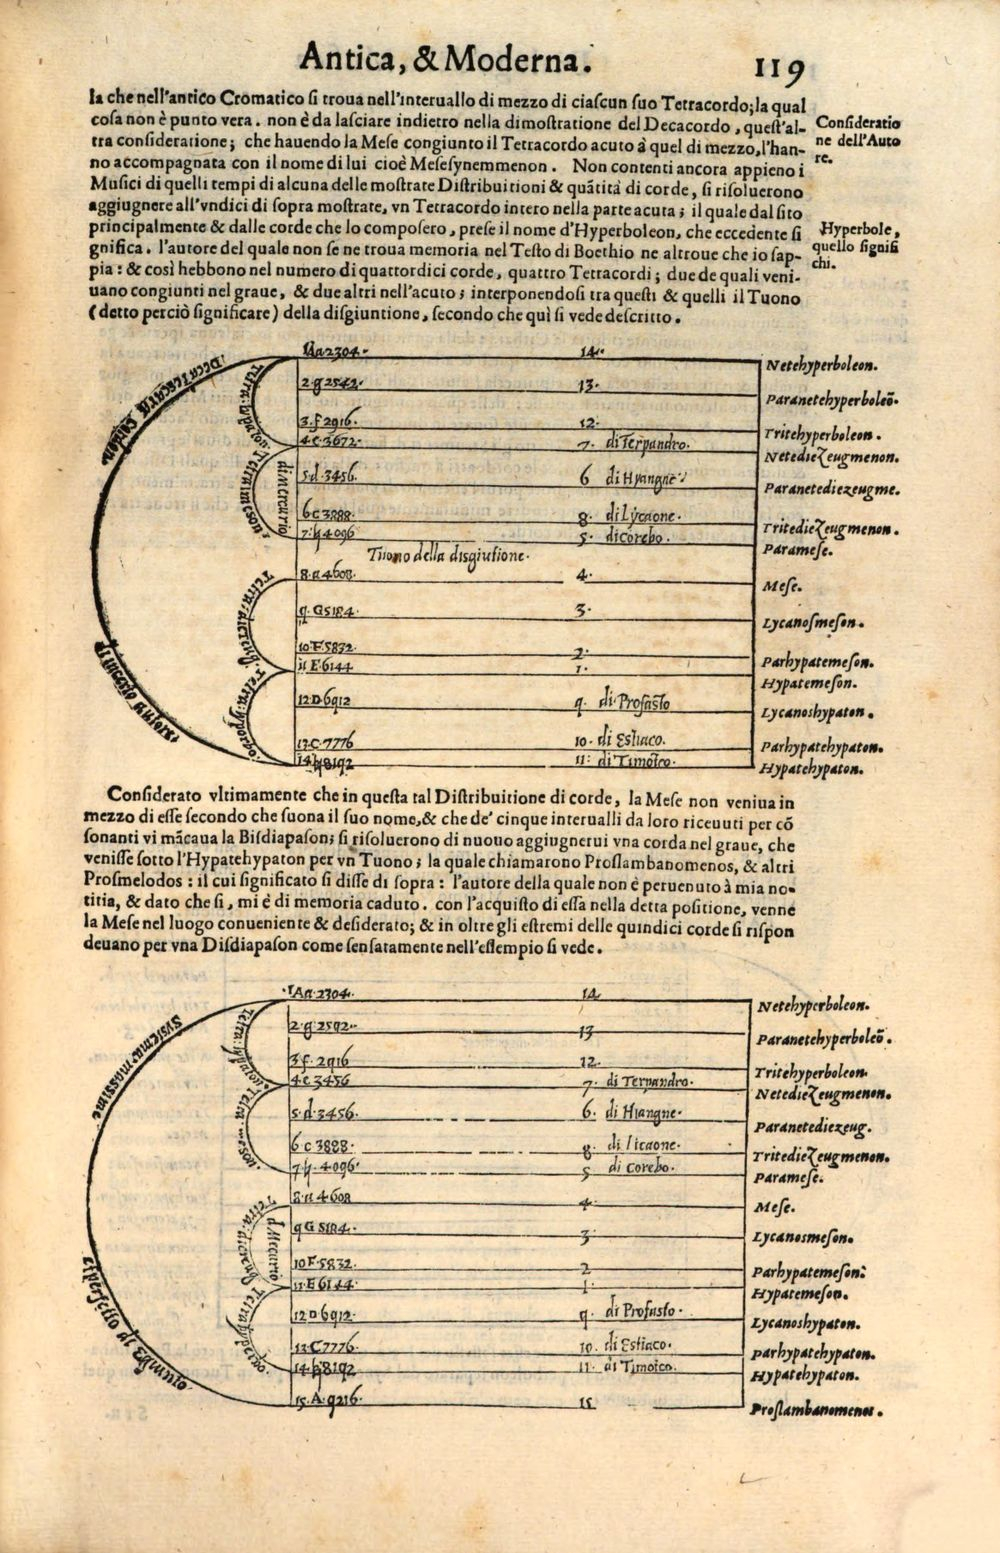 Antica, & Moderna. 119
la che nell'antico Cromatico si troua nell'interuallo di mezzo di ciascun suo Tetracordo; la qual
cosa non è punto vera. non è da lasciare indietro nella dimostratione del Decacordo, quest'al-
tra consideratione; che hauendo la Mese congiunto il Tetracordo acuto à quel di mezzo, l'han-
no accompagnata con il nome di lui cioè Mesesynemmenon. Non contenti ancora appieno i
Musici di quelli tempi di alcuna delle mostrate Distribuitioni & quãtità di corde, si risoluerono
aggiugnere all'vndici di sopra mostrate, vn Tetracordo intero nella parte acuta; il quale dal sito
principalmente & dalle corde che lo composero, prese il nome d'Hyperboleon, che eccedente si
gnifica. l'autore del quale non se ne troua memoria nel Testo di Boethio ne altroue che io sap-
pia: & così hebbono nel numero di quattordici corde, quattro Tetracordi; due de quali veni-
uano congiunti nel graue, & due altri nell'acuto; interponendosi tra questi & quelli il Tuono
(detto perciò significare) della disgiuntione, secondo che quì si vede descritto.
Consideratio
ne dell'Auto
re.
Hyperbole,
quello signifi
chi.
Aa 2304. 14. Netehyperboleon.
2. g 2542. 13. Paranetehyperboleõ.
3. f 2916. 12. Tritehyperboleon.
4 e. 3672. 7. di Terpandro. NetedieZeugmenon.
5. d. 3456. 6 di Hyangne. Paranetediezeugme.
6 c 3888. 8. di Lycaone. TritedieZeugmenon.
7. ♮ 4096 5. di Corebo. Paramese.
Tuono della disgiutione.
8. a 4608. 4. Mese.
9. G 5184. 3. Lycanosmeson.
10 F. 5832. 2. Parhypatemeson.
11 E. 6144 1. Hypatemeson.
12 D 6912 9. di Profasto Lycanoshypaton.
13. C. 7776 10. di Estiaco. Parhypatehypaton.
14 ♮ 8192 11. di Timoteo. Hypatehypaton.
Tetra. ypaton.
Tetra meson.
di mercurio
Tetra. diezeug.
d'incerto autore.
Considerato vltimamente che in questa tal Distribuitione di corde, la Mese non veniua in
mezzo di esse secondo che suona il suo nome, & che de' cinque interualli da loro riceuuti per cõ
sonanti vi mãcaua la Bisdiapason; si risoluerono di nuouo aggiugnerui vna corda nel graue, che
venisse sotto l'Hypatehypaton per vn Tuono; la quale chiamarono Proslambanomenos, & altri
Prosmelodos: il cui significato si disse di sopra: l'autore della quale non è peruenuto à mia no-
titia, & dato che si, mi è di memoria caduto. con l'acquisto di essa nella detta positione, venne
la Mese nel luogo conueniente & desiderato; & in oltre gli estremi delle quindici corde si rispon
deuano per vna Disdiapason come sensatamente nell'essempio si vede.
1 Aa. 2304. 14 Netehyperboleon.
2. g. 2592. 13 Paranetehyperboleõ.
3 f. 2916 12. Tritehyperboleon.
4 e 3456 7. di Terpandro. NetedieZeugmenon.
5. d. 3456. 6. di Hiangne. Paranetediezeug.
6 c 3888. 8. di Licaone. TritedieZeugmenon.
7 ♮. 4096. 5 di Corebo. Paramese.
8. a 4608 4. Mese.
9 G 5184. 3. Lycanosmeson.
10 F. 5832. 2 Parhypatemeson.
11. E 6144. 1. Hypatemeson.
12 D 6912. 9. di Profasto. Lycanoshypaton.
13. C 7776. 10. di Estiaco. Parhypatehypaton.
14. ♮ 8192 11. di Timoteo. Hypatehypaton.
15. A. 9216. 15 Proslambanomenos.
Systema massimo
et perfetto di Egiunto
Tetra. ypaton.
Tetra. meson.
Tetra. diezeug
d. Mecurio